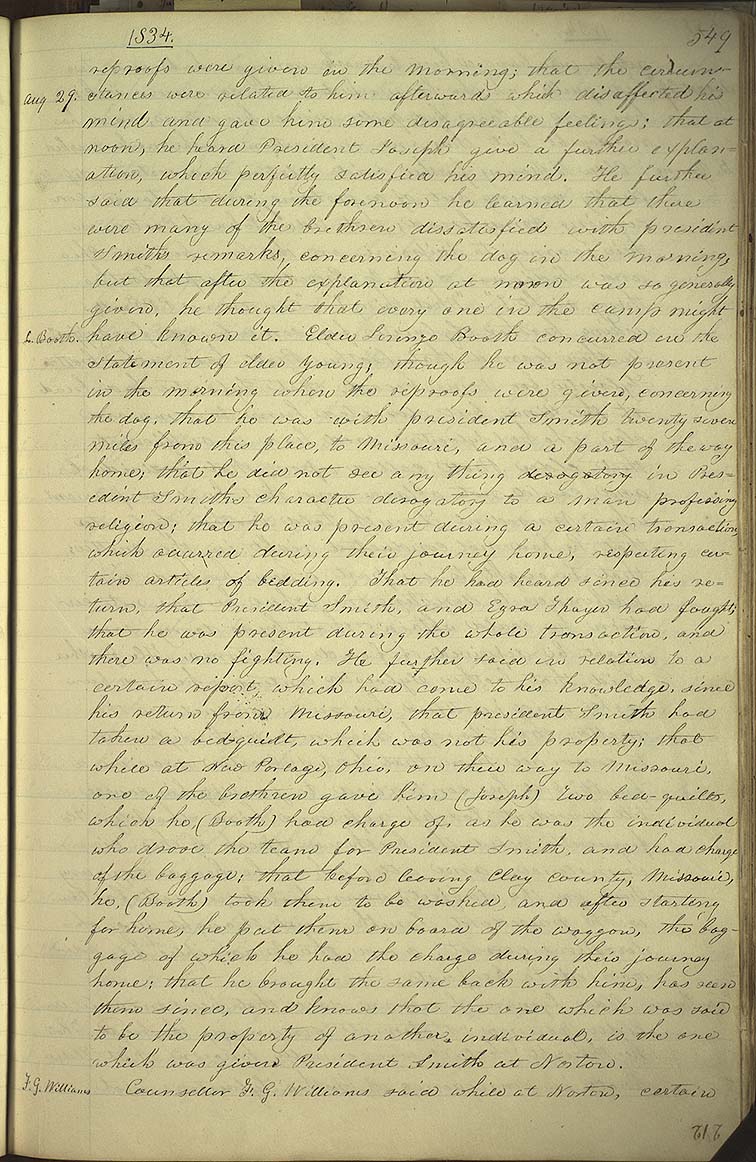 1834.
549
reproofs were given in the morning; that the circum-
Aug 29. stances were related to him afterward which disaffected his
mind and gave him some disagreeable feelings; that at
noon, he heard President Joseph give a further explan=
ation, which perfectly satisfied his mind. He further
said that during the forenoon he learned that there
were many of the brethren dissatisfied with president
Smith's remarks, concerning the dog in the morning,
but that after the explanation at noon was so generally
given, he thought that every one in the camp might
L. Booth. have known it. Elder Lorenzo Booth concurred in the
statement of elder Young; though he was not present
in the morning when the reproofs were given, concerning
the dog. that he was with president Smith twenty seven
miles from this place, to Missouri, and a part of the way
home; that he did not see any thing derogatory in Pres=
ident Smith's character derogatory to a man professing
religion; that he was present during a certain transaction,
which occurred during their journey home, respecting cer-
tain articles of bedding. That he had heard since his re=
turn, that President Smith, and Ezra Thayer had fought;
that he was present during the whole transaction, and
there was no fighting. He further said in relation to a
certain report, which had come to his knowledge, since
his return from Missouri, that president Smith had
taken a bed-quilt, which was not his property; that
while at New Portage, Ohio, on their way to Missouri,
one of the brethren gave him (Joseph) two bed-quilts,
which he, (Booth) had charge of, as he was the individual
who drove the team for President Smith, and had charge
of the baggage; that before leaving Clay county, Missouri,
he, (Booth) took them to be washed, and after starting
for home, he put them on board of the waggon, the bag-
gage of which he had the charge during their journey
home; that he brought the same back with him, has seen
them since, and knows that the one which was said
to be the property of another individual, is the one
which was given President Smith at Norton.
F. G. Williams Counsellor F. G. Williams said while at Norton, certain
212